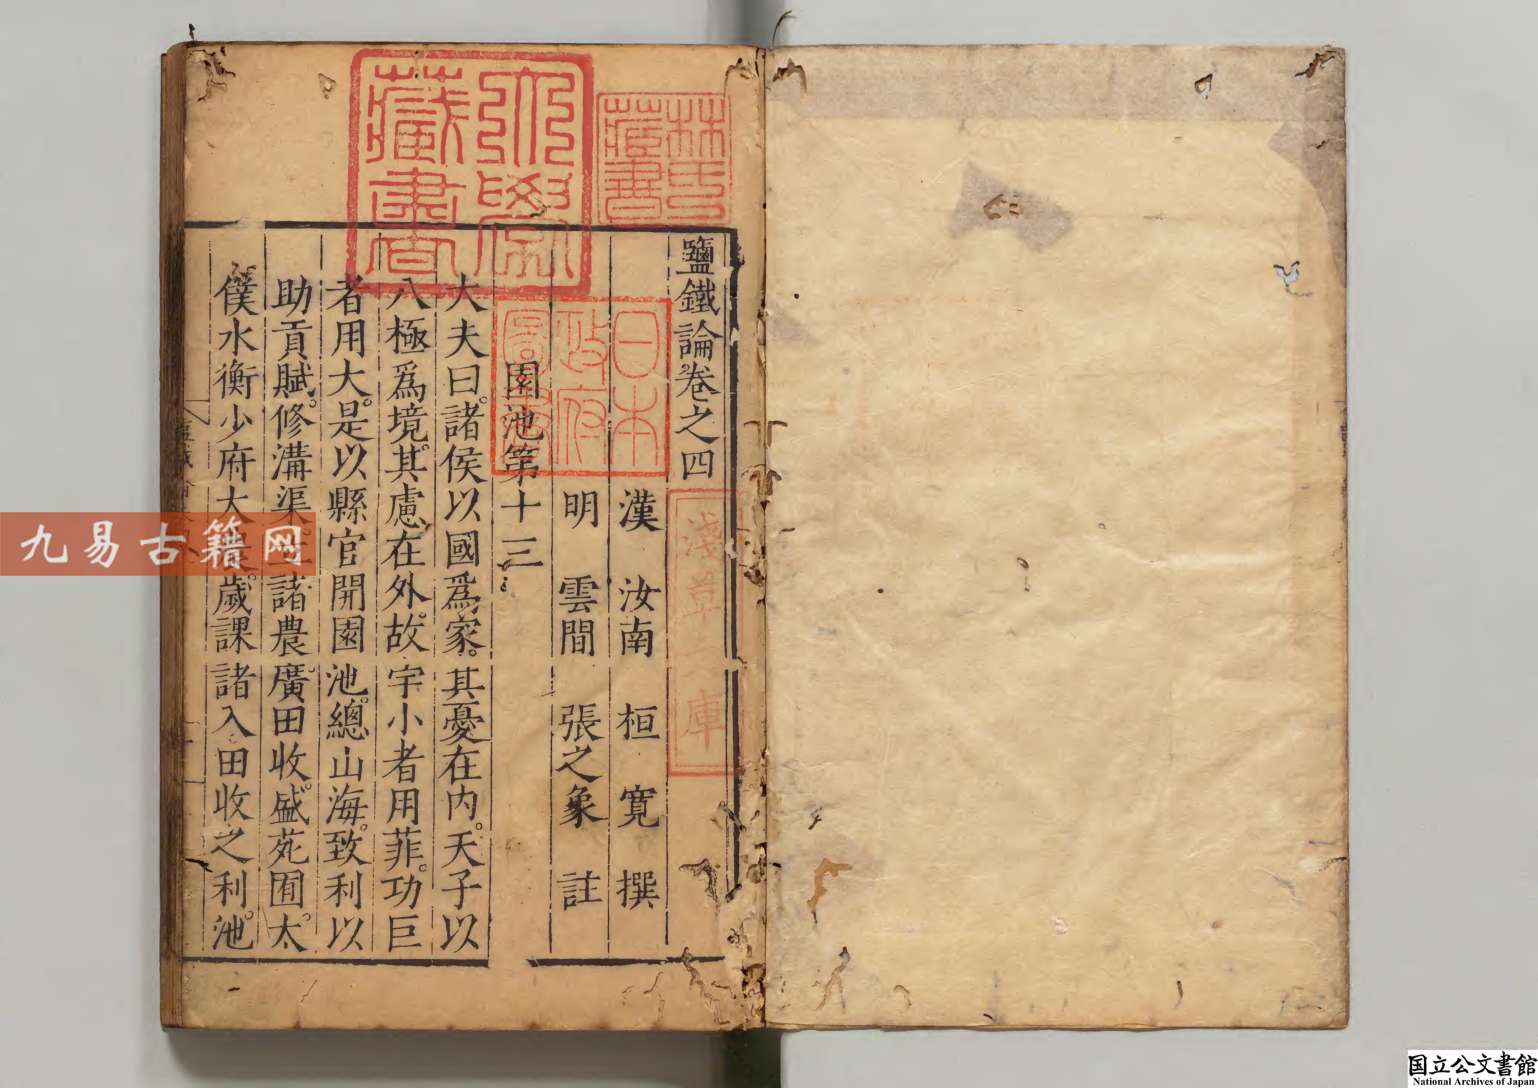 鹽鐵論卷之四
漢 汝南 桓 寬 撰
明 雲間 張之象 註
園池第十三
大夫曰。諸侯以國爲家。其憂在內。天子以
八極爲境。其慮在外。故宇小者用菲。功巨
者用大。是以縣官開園池。總山海。致利以
助貢賦。修溝渠。立諸農。廣田收。盛苑囿。太
僕水衡少府大農。歲課諸入田收之利。池
林氏藏書
弘文學 藏書
日本政府圖書
淺草文庫
九易古籍网
国立公文書館
National Archives of Japan